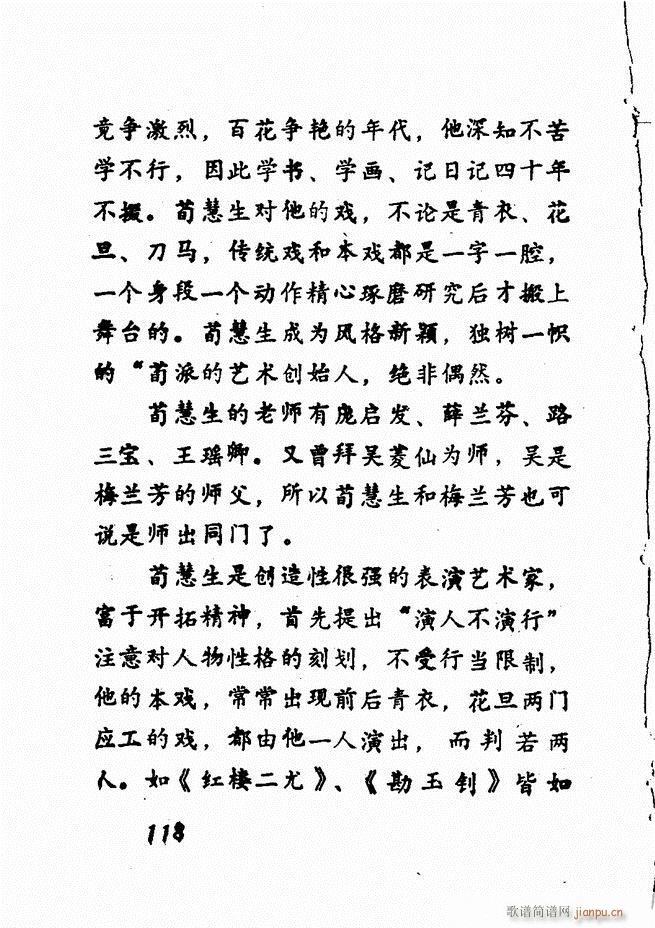 竟争激烈，百花争艳的年代，他深知不苦
学不行，因此学书、学画、记日记四十年
不掇。荀慧生对他的戏，不论是青衣、花
旦、刀马，传统戏和本戏都是一字一腔，
一个身段一个动作精心琢磨研究后才搬上
舞台的。荀慧生成为风格新颖，独树一帜
的“荀派的艺术创始人，绝非偶然。
荀慧生的老师有庞启发、薛兰芬、路
三宝、王瑶卿。又曾拜吴菱仙为师，吴是
梅兰芳的师父，所以荀慧生和梅兰芳也可
说是师出同门了。
荀慧生是创造性很强的表演艺术家，
富于开拓精神，首先提出“演人不演行”
注意对人物性格的刻划，不受行当限制，
他的本戏，常常出现前后青衣，花旦两门
应工的戏，都由他一人演出，而判若两
人。如《红楼二尤》、《勘玉钊》皆如
118
歌谱简谱网jianpu.cn